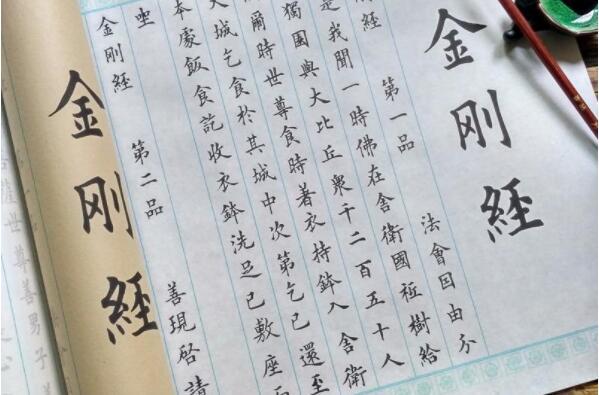 金刚經
剛經 第一品 法會因由分
是我聞一時佛在舍衛國祇樹給
獨園與大比丘衆千二百五十人
爾時世尊食時著衣持鉢入舍衛
大城乞食於其城中次第乞已還至
本處飯食訖收衣鉢洗足已敷座而
坐
金剛經 第二品 善現啓請
金刚經
薩世尊善男子